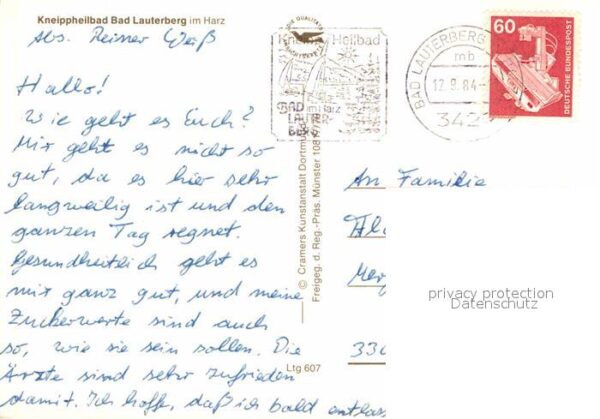 Kneippheilbad Bad Lauterberg im Harz
Abs. Reiner Weiß
Hallo!
Wie geht es Euch?
Mir geht es nicht so
gut, da es hier sehr
langweilig ist und den
ganzen Tag regnet.
Gesundheitlich geht es
mir ganz gut, und meine
Zuckerwerte sind auch
so, wie sie sein sollen. Die
Ärzte sind sehr zufrieden
damit. Ich hoffe, daß ich bald entlas
© Cramers Kunstanstalt Dortmund
Freigeg. d. Reg.-Präs. Münster
Ltg 607
Heilbad
BAD
im Harz
LAUTER-
BERG
BAD LAUTERBERG
mb
12.9.84
342
60
DEUTSCHE BUNDESPOST
An Familie
330
privacy protection
Datenschutz